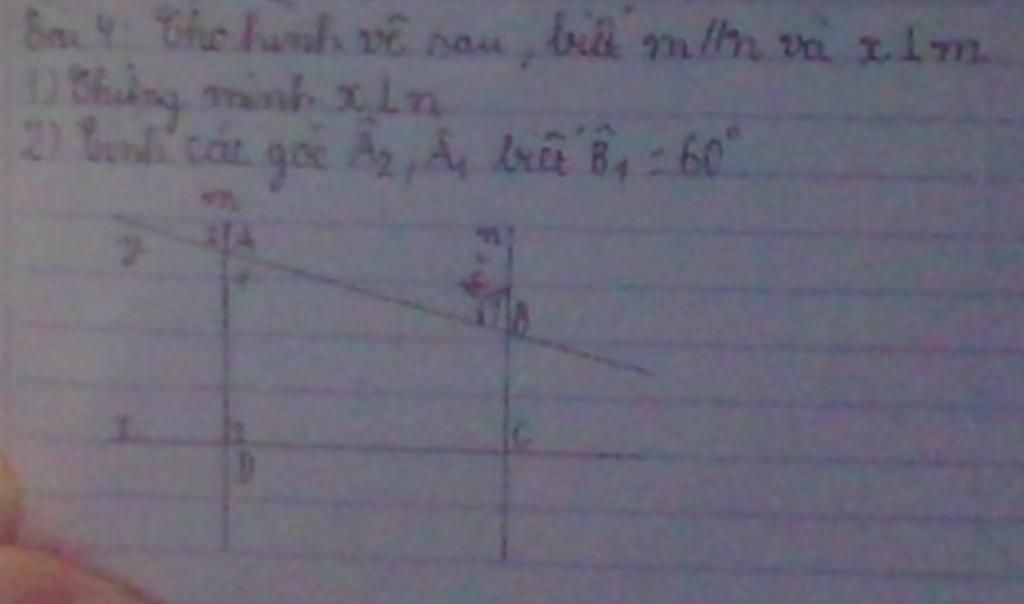 Bài 4: Cho hình vẽ sau, biết m//n và x⊥m
1) Chứng minh x⊥n
2) Tính các góc Â₂, Â₁ biết B̂₁ = 60°
m
A
n
y
1
B
x
C
D